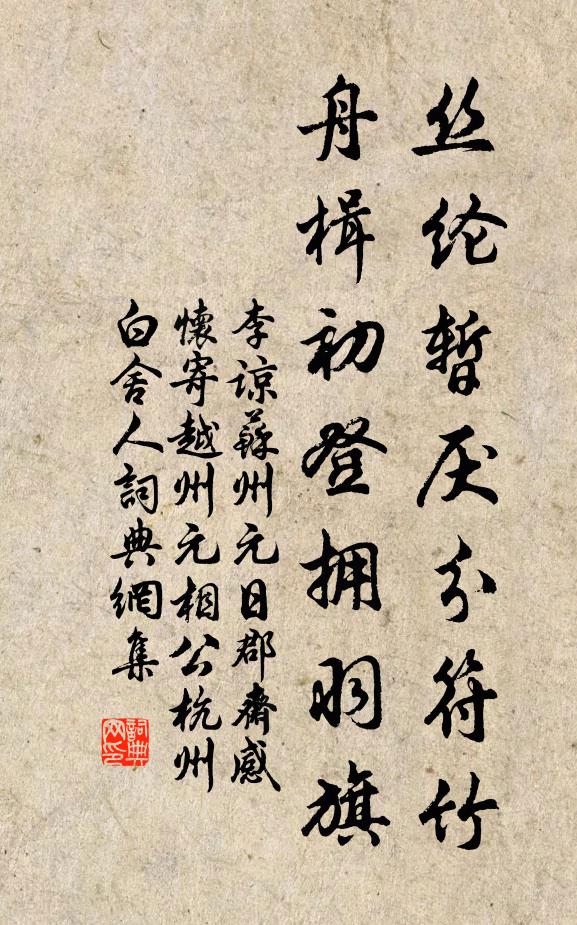 丝纶暂厌分符竹
舟楫初登拥羽旗
李諒蘇州元日郡齋感
懷寄越州元相公杭州
白舍人詞典網集
詞典网印